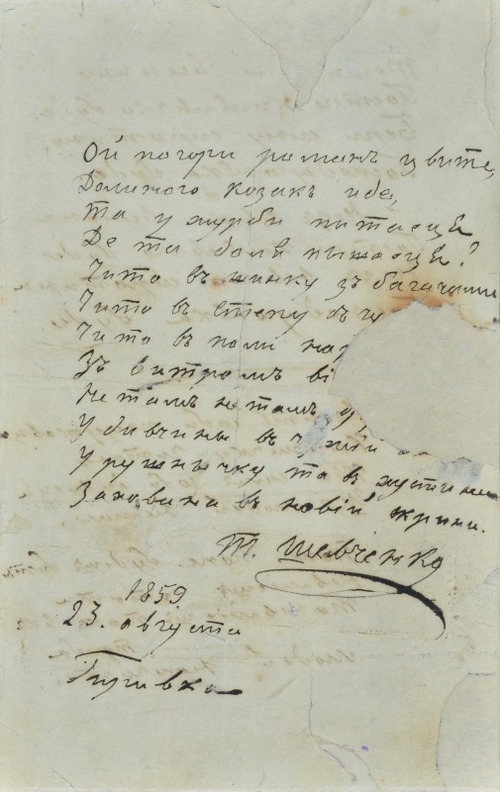 Ой погори романъ цвите,
Долиною козакъ иде,
Та у журби питаеця
Де та доля пышаеця?
Чи то въ шинку зъ багачами
Чи то въ степу
Чи то въ поли
Зъ витромъ
Не тамъ не тамъ
У дивчины въ
У рушнычку та в хустини
Захована в новій скрини.
Т. Шевченко
1859
23. августа
Гиривка